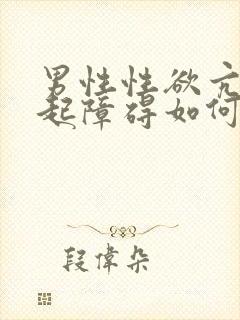 男性性欲亢
起障碍如何
段偉朵